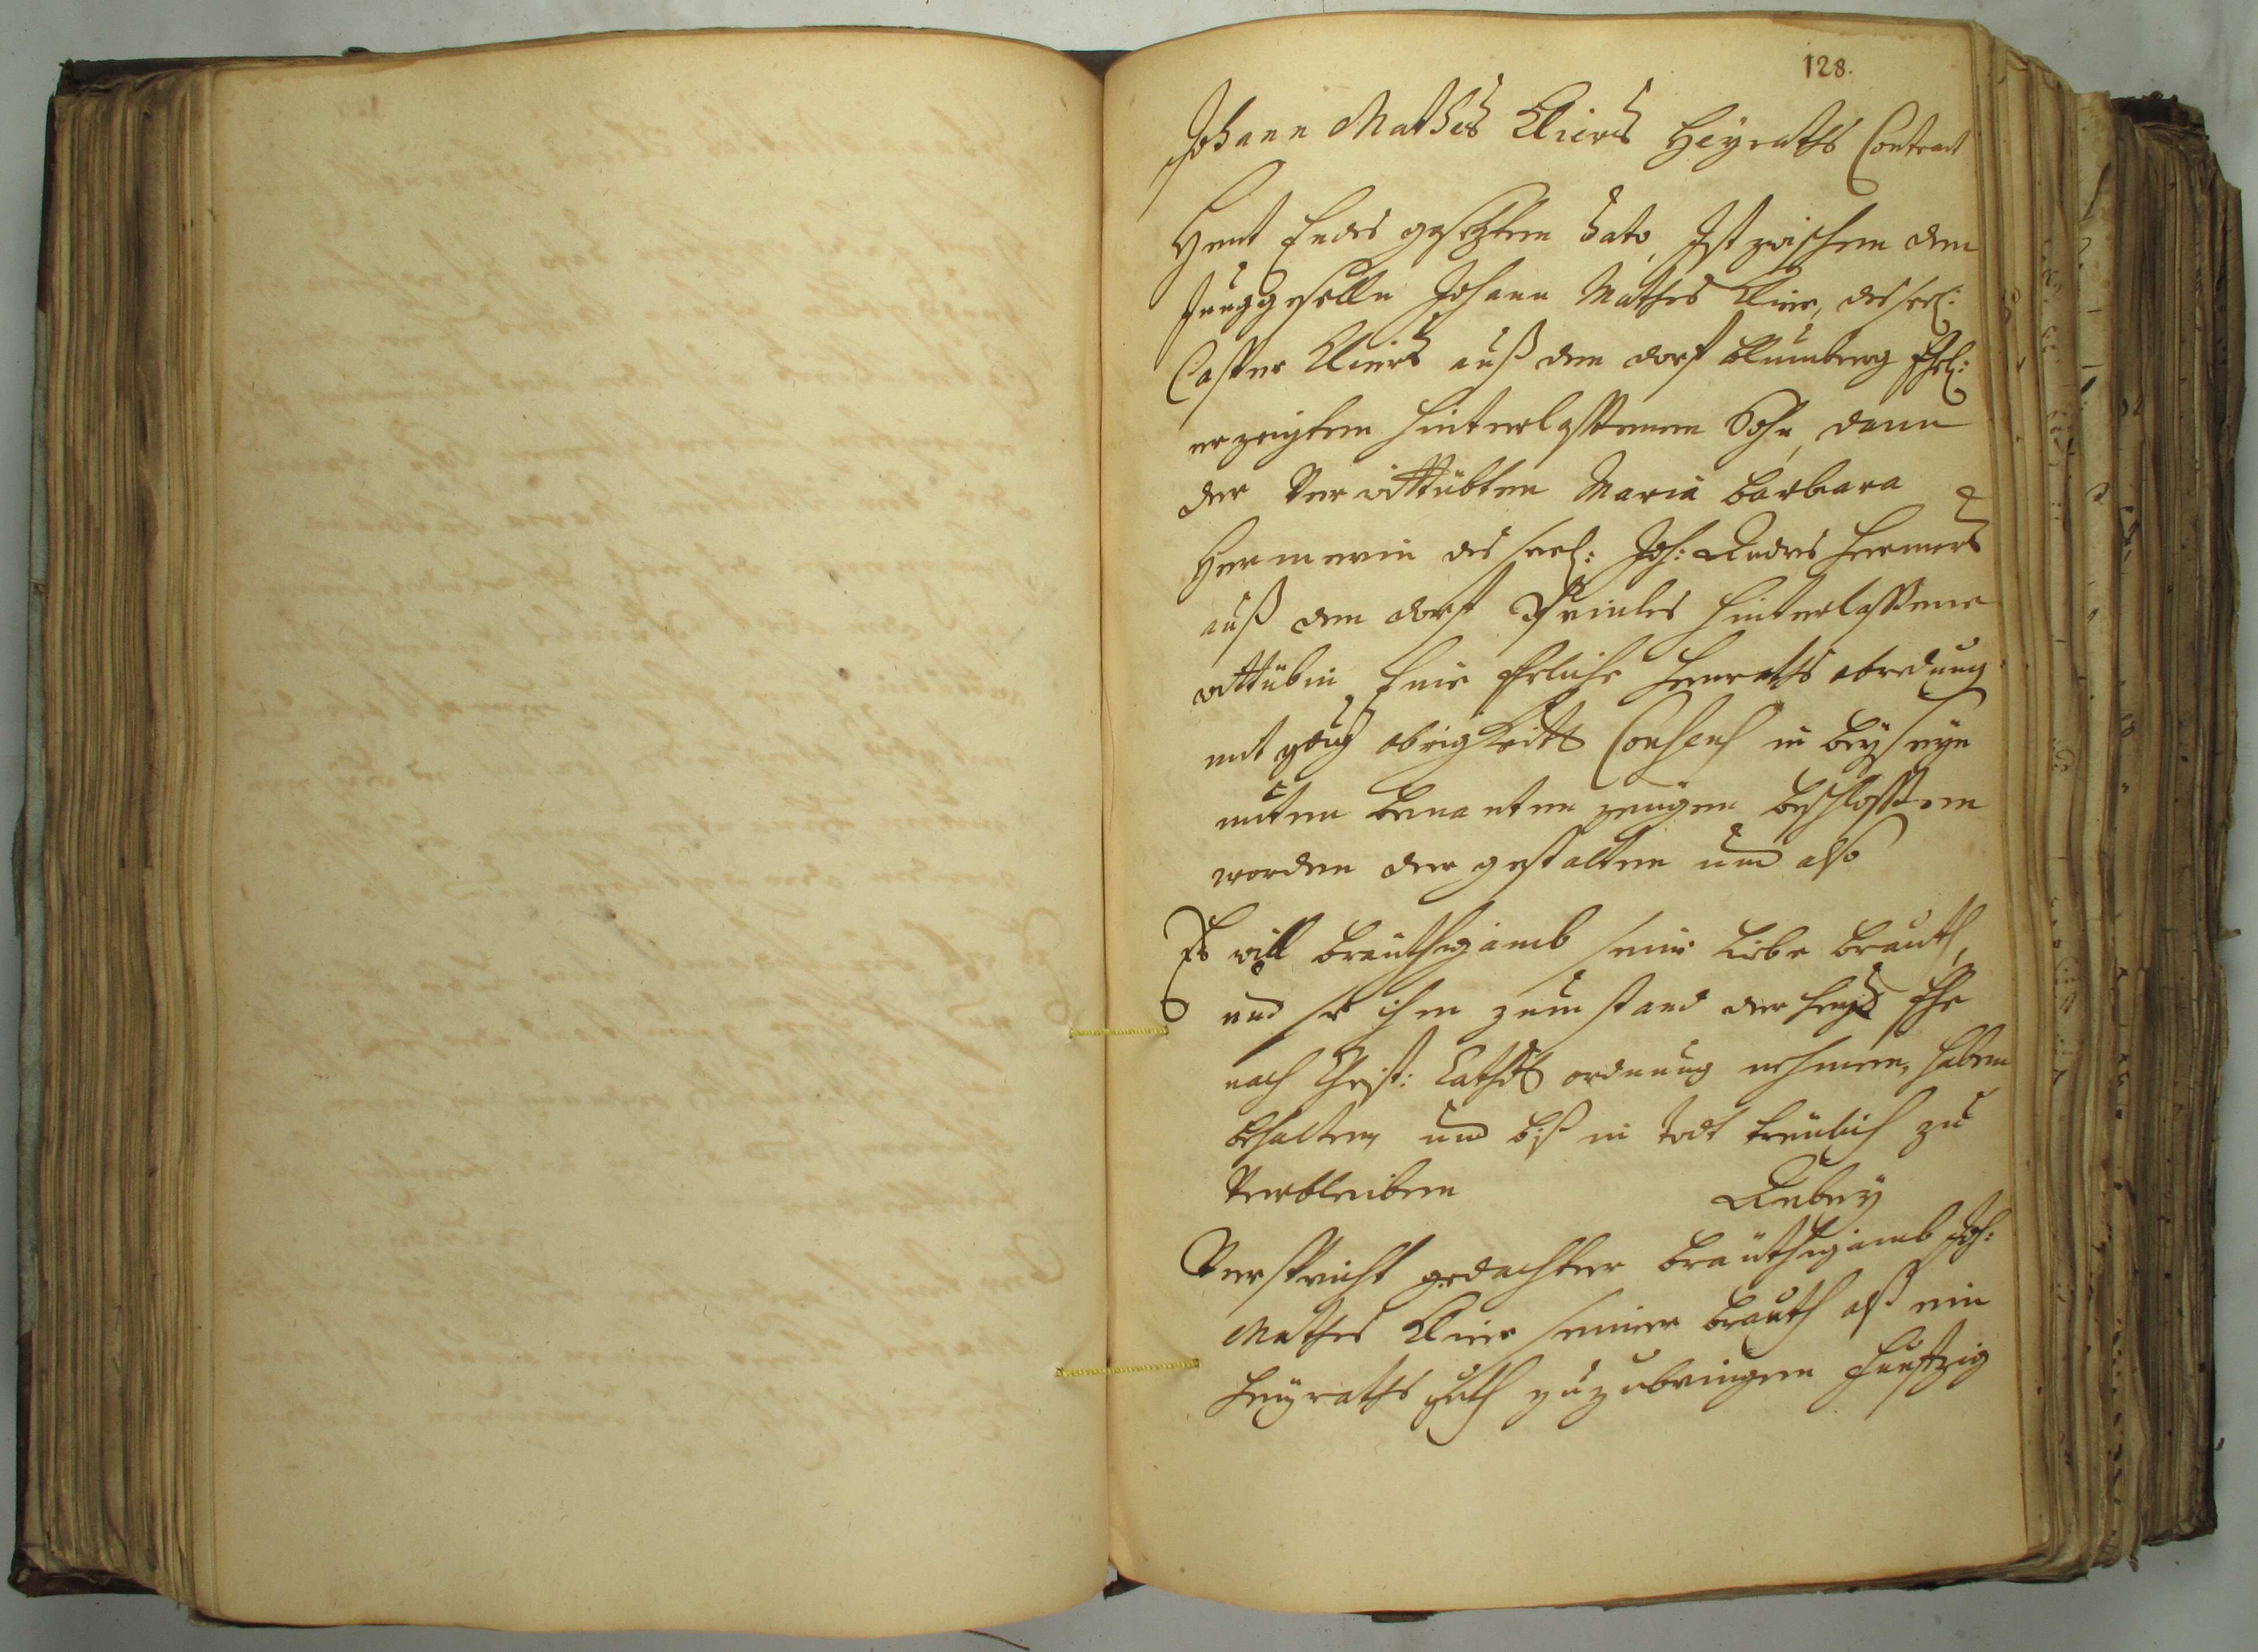 128.
Johann Mathes Klier's Heÿraths Contract
Heut Endes gesetzten dato, Ist zwischen dem
Junggesellen Johann Mathes Klier, des seel:
Casper Kliers auß dem dorf Blumberg Ehel:
erzeigten hinterlassenen Sohn, dann
der Verwittübten Maria Barbara
Hermerin des seel: Joh: Andres Hermers
auß dem dorf hinterlassene
wittübin Eine Eheliche Heuraths abredung
mit obrigkeits Consens in beÿseÿn
unten benanten zeugen beschlossen
worden der gestalten und also
Es will Breuthigamb seine liebe Brauth,
und sie ihn zum stand der heÿl: Ehe
nach Christ: Cathol: ordnung nehmen, haben
behalten, und biß in todt treulich zu
Verbleiben
Anbeÿ
Verspricht gedachter Bräuthigamb Joh:
Mathes Klier seiner Brauth alß ein
Heÿraths guth zuzubringen Funftzig